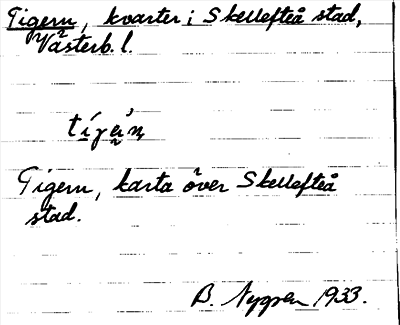 Tigern, kvarter i Skellefteå stad,
Västerb. l.
Tigern, karta över Skellefteå
stad.
B. 1933.